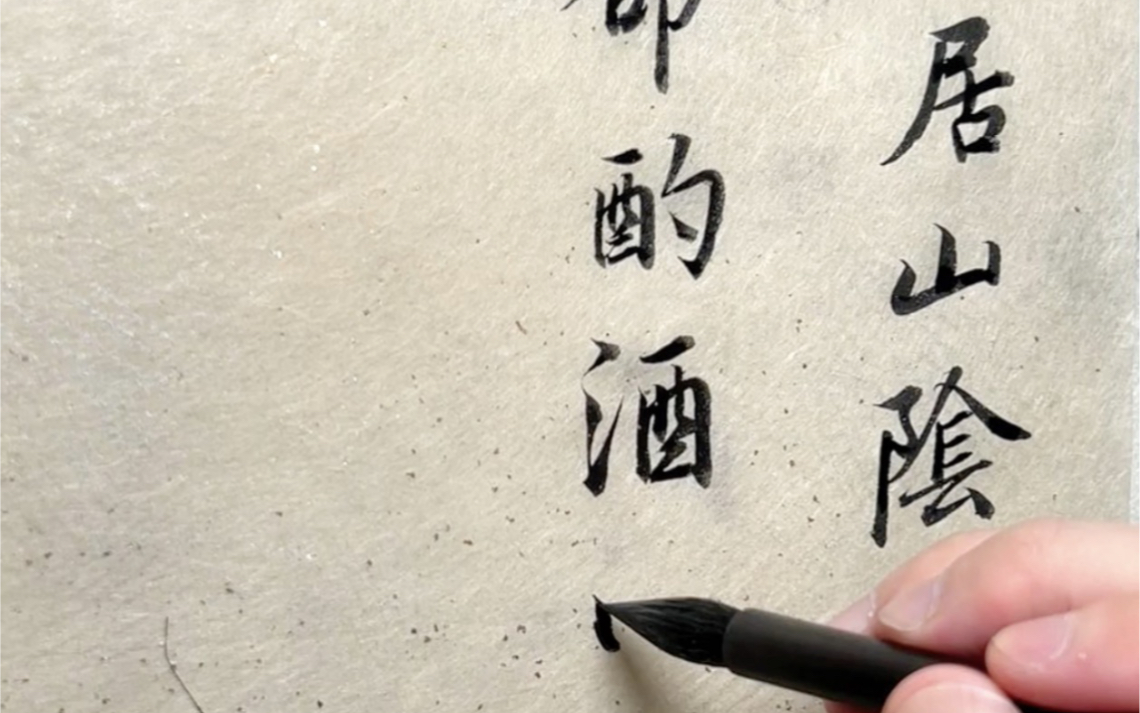 居山陰
命酌酒